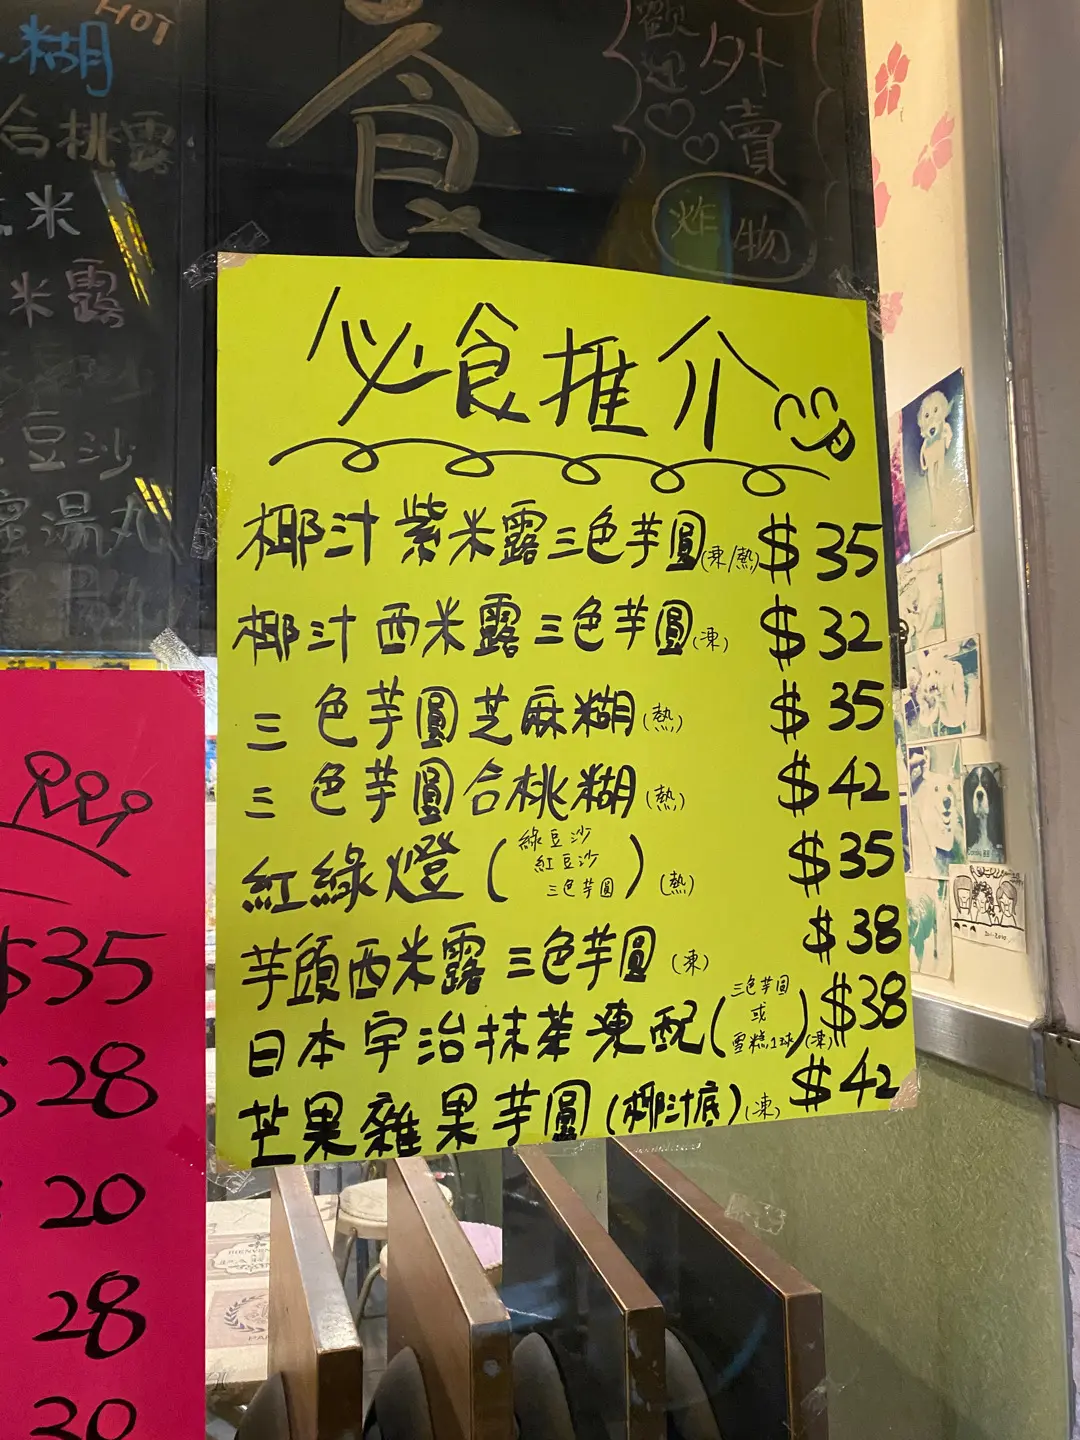 HOT
糊
合桃露
米
米露
豆沙
湯丸
食
歡迎
外賣
炸物
必食推介
椰汁紫米露三色芋圓(凍/熱) $35
椰汁西米露三色芋圓(凍) $32
三色芋圓芝麻糊(熱) $35
三色芋圓合桃糊(熱) $42
紅綠燈(綠豆沙 紅豆沙 三色芋圓)(熱) $35
芋頭西米露三色芋圓(凍) $38
日本宇治抹茶凍配(三色芋圓 或 雪糕1球)(凍) $38
芒果雜果芋圓(椰汁底)(凍) $42
$35
28
20
28
30